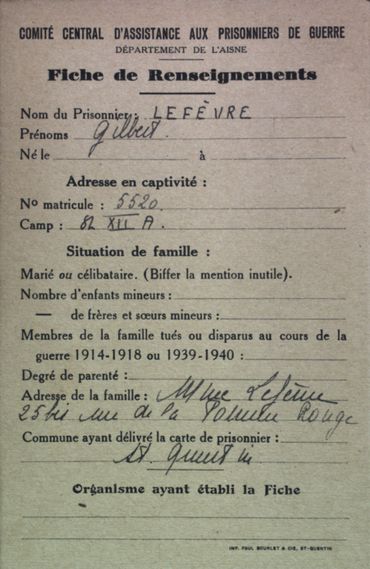 COMITÉ CENTRAL D'ASSISTANCE AUX PRISONNIERS DE GUERRE
DÉPARTEMENT DE L'AISNE
Fiche de Renseignements
Nom du Prisonnier : LEFÈVRE
Prénoms Gilbert
Né le à
Adresse en captivité :
No matricule : 5520.
Camp : XII A.
Situation de famille :
Marié ou célibataire. (Biffer la mention inutile).
Nombre d'enfants mineurs :
— de frères et sœurs mineurs :
Membres de la famille tués ou disparus au cours de la
guerre 1914-1918 ou 1939-1940 :
Degré de parenté :
Adresse de la famille : Mme Lefèvre
25 bis rue de la Pomme Rouge
Commune ayant délivré la carte de prisonnier :
St Quentin
Organisme ayant établi la Fiche
IMP. PAUL BOURLET & CIE, ST-QUENTIN